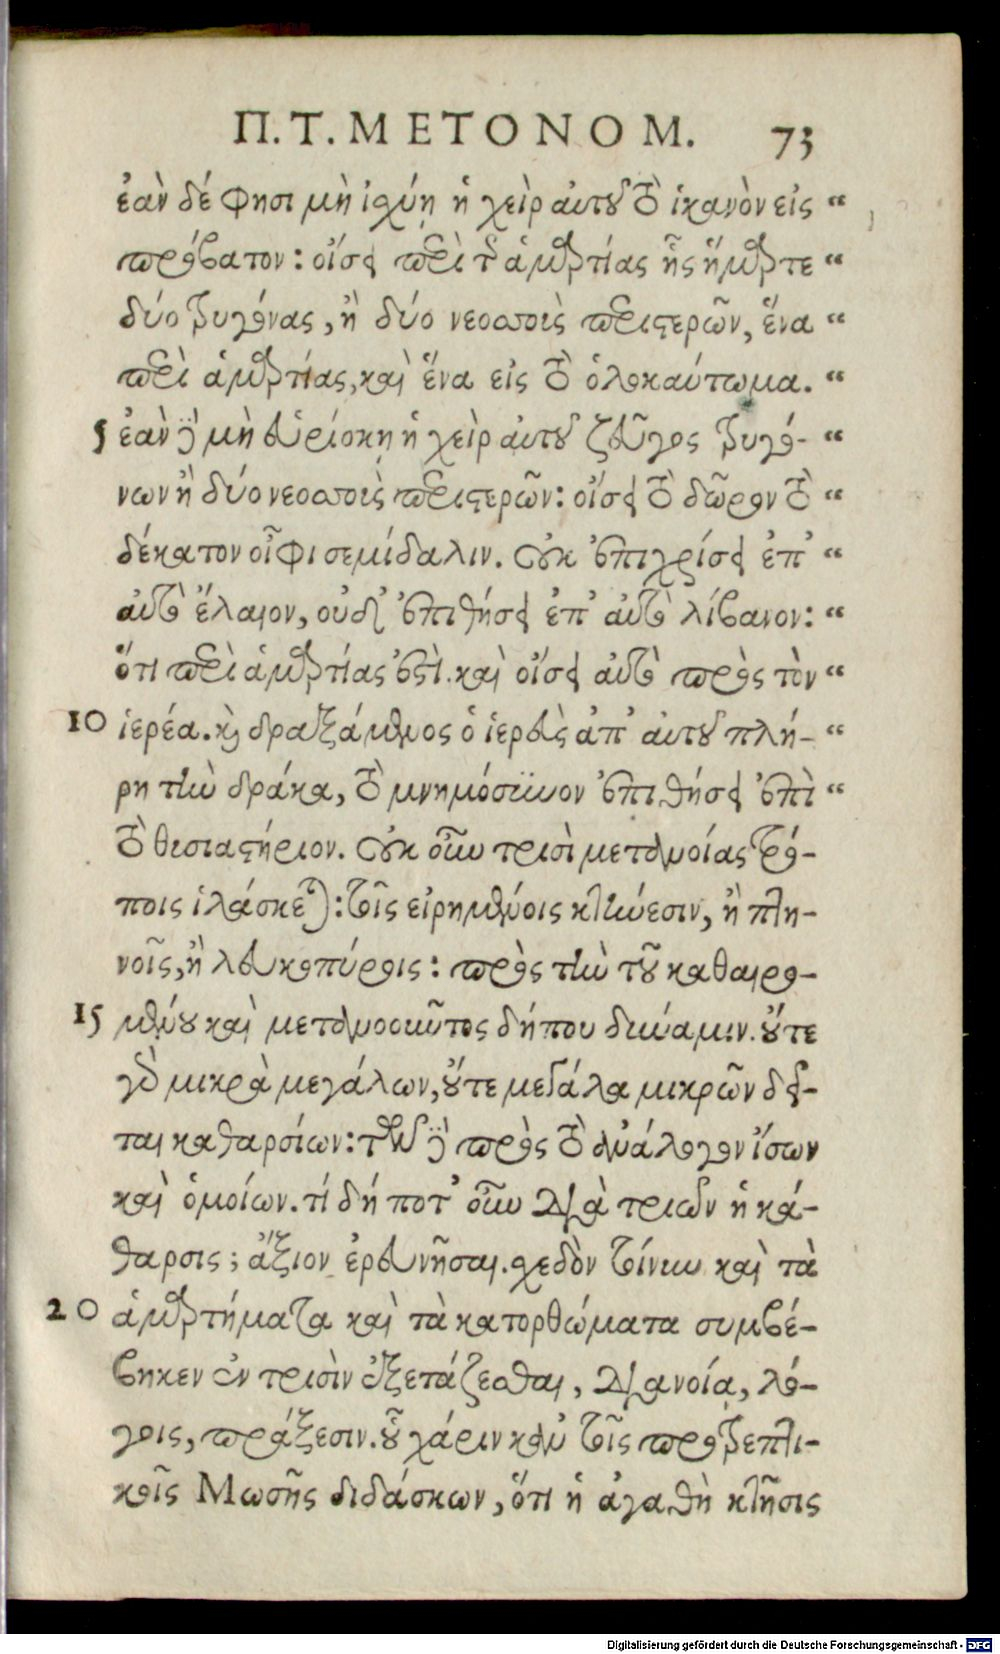 Π.Τ. ΜΕΤΟΝΟΜ. 73
ἐὰν δέ φησι μὴ ἰσχύῃ ἡ χεὶρ αὐτοῦ τὸ ἱκανὸν εἰς “
πρόβατον: οἴσει περὶ τῆς ἁμαρτίας ἧς ἥμαρτε “
δύο τρυγόνας, ἢ δύο νεοσσοὺς περιστερῶν, ἕνα “
περὶ ἁμαρτίας, καὶ ἕνα εἰς τὸ ὁλοκαύτωμα. “
5 ἐὰν δὲ μὴ εὑρίσκῃ ἡ χεὶρ αὐτοῦ ζεῦγος τρυγό- “
νων ἢ δύο νεοσσοὺς περιστερῶν: οἴσει τὸ δῶρον τὸ “
δέκατον οἶφι σεμίδαλιν. οὐκ ἐπιχρίσει ἐπ’ “
αὐτὸ ἔλαιον, οὐδὲ ἐπιθήσει ἐπ’ αὐτὸ λίβανον: “
ὅτι περὶ ἁμαρτίας ἐστί. καὶ οἴσει αὐτὸ πρὸς τὸν “
10 ἱερέα. καὶ δραξάμενος ὁ ἱερεὺς ἀπ’ αὐτοῦ πλή- “
ρη τὴν δράκα, τὸ μνημόσυνον ἐπιθήσει ἐπὶ “
τὸ θυσιαστήριον. οὐκ οὖν τρισὶ μετανοίας τρό-
ποις ἱλάσκεται: τοῖς εἰρημένοις κτήνεσιν, ἢ πτη-
νοῖς, ἢ λευκοπύροις: πρὸς τὴν τοῦ καθαιρο-
15 μένου καὶ μετανοοῦντος δήπου δύναμιν. οὔτε
γὰρ μικρὰ μεγάλων, οὔτε μεγάλα μικρῶν δεῖ-
ται καθαρσίων: τῶν δὲ πρὸς τὸ ἀνάλογον ἴσων
καὶ ὁμοίων. τί δή ποτ’ οὖν διὰ τριῶν ἡ κά-
θαρσις; ἄξιον ἐρευνῆσαι. σχεδὸν τοίνυν καὶ τὰ
20 ἁμαρτήματα καὶ τὰ κατορθώματα συμβέ-
βηκεν ἐν τρισὶν ἐξετάζεσθαι, διανοίᾳ, λό-
γοις, πράξεσιν. οὗ χάριν κἀν τοῖς προτρεπτι-
κοῖς Μωσῆς διδάσκων, ὅτι ἡ ἀγαθὴ κτῆσις
Digitalisierung gefördert durch die Deutsche Forschungsgemeinschaft - DFG